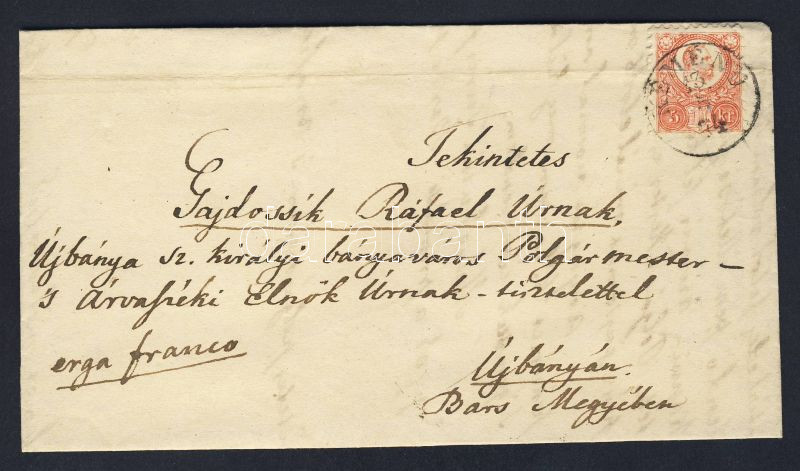 Tekintetes
Gajdossik Ráfael Úrnak,
Újbánya sz. királyi bányaváros Polgármester –
's Árvaszéki Elnök Úrnak – tisztelettel
erga franco
Újbányán.
Bars Megyében
5 kr
darabanth